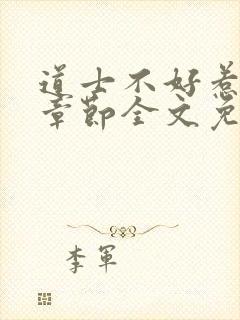 道士不好惹
章節全文免
李軍